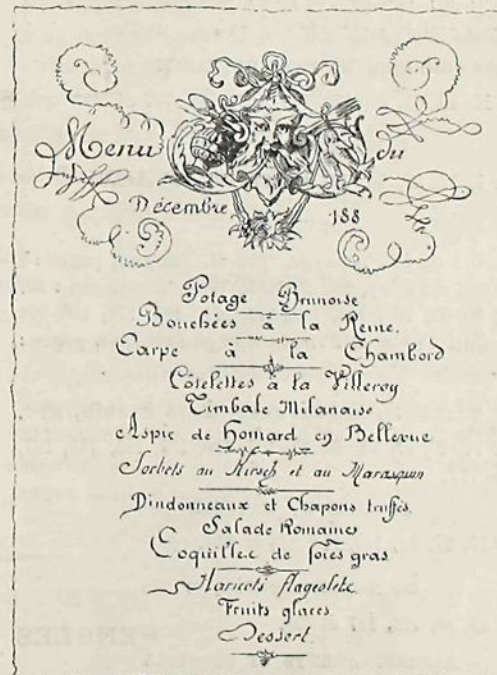 Menu du
Décembre 188
Potage Brunoise
Bouchées à la Reine.
Carpe à la Chambord
Côtelettes à la Villeroy
Timbale Milanaise
Aspic de Homard en Bellevue
Sorbets au Kirsch et au Marasquin
Dindonneaux et Chapons truffés.
Salade Romaine
Coquilles de foies gras
Haricots flageolets
Fruits glacés.
Dessert.